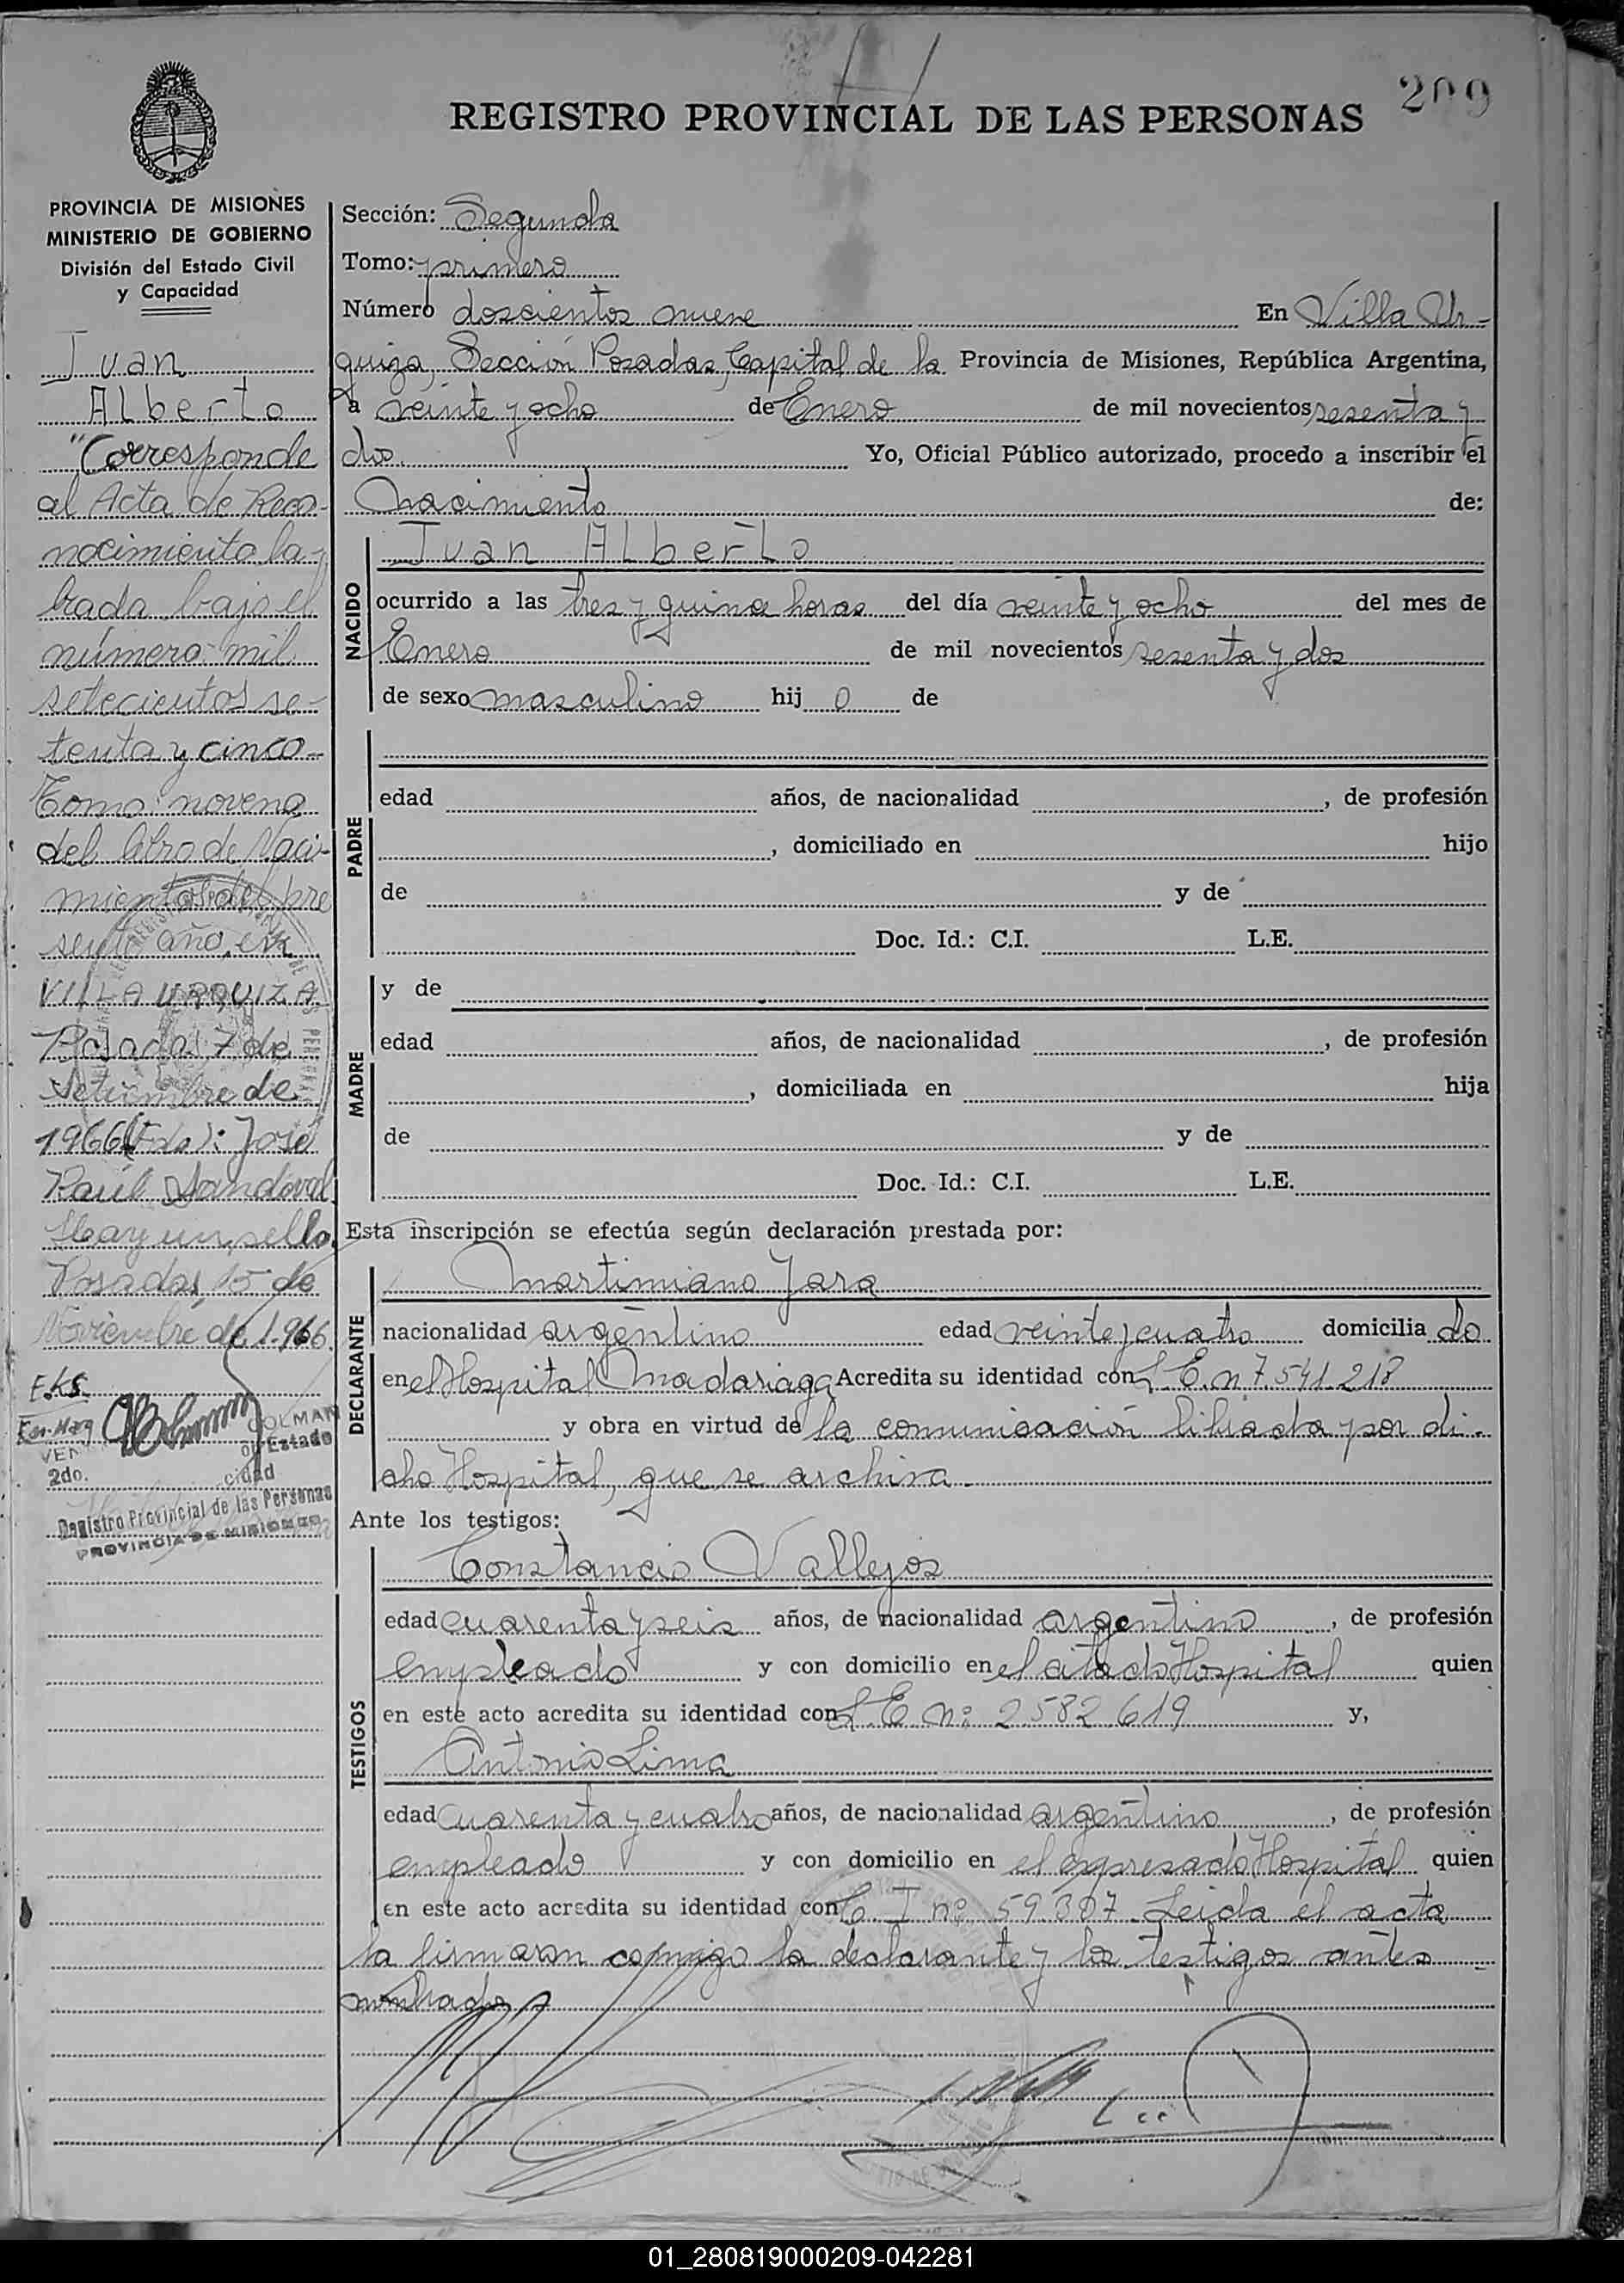 209
REGISTRO PROVINCIAL DE LAS PERSONAS
PROVINCIA DE MISIONES
MINISTERIO DE GOBIERNO
División del Estado Civil
y Capacidad
Juan
Alberto
"Corresponde
al Acta de Reco-
nocimiento la-
brada bajo el
número mil
setecientos se-
tenta y cinco-
Tomo: noveno
del libro de Naci-
mientos del pre
sente año, en
VILLA URQUIZA
Posadas 7 de
Setiembre de
1966 (Fdo): José
Raúl Sandoval
Hay un sello.
Posadas 15 de
Noviembre de 1.966
COLMAN
Estado
2do.
cidad
Registro Provincial de las Personas
PROVINCIA DE MISIONES
Sección: Segunda
Tomo: primero
Número doscientos nueve En Villa Ur-
quiza, Sección Posadas, Capital de la Provincia de Misiones, República Argentina,
a veinte y ocho de Enero de mil novecientos sesenta y
dos. Yo, Oficial Público autorizado, procedo a inscribir el
nacimiento de:
NACIDO
Juan Alberto
ocurrido a las tres y quince horas del día veinte y ocho del mes de
Enero de mil novecientos sesenta y dos
de sexo masculino hij o de
PADRE
edad años, de nacionalidad , de profesión
, domiciliado en hijo
de y de
Doc. Id.: C.I. L.E.
MADRE
y de
edad años, de nacionalidad , de profesión
, domiciliada en hija
de y de
Doc. Id.: C.I. L.E.
Esta inscripción se efectúa según declaración prestada por:
DECLARANTE
Martimiano Jara
nacionalidad argentino edad veinte y cuatro domicilia do
en el Hospital Madariaga Acredita su identidad con L.E. n 7.541.218
y obra en virtud de la comunicación librada por di-
cho Hospital, que se archiva.
Ante los testigos:
TESTIGOS
Constancio Vallejos
edad cuarenta y seis años, de nacionalidad argentino , de profesión
empleado y con domicilio en el citado Hospital quien
en este acto acredita su identidad con L.E. nº 2.582.619 y,
Antonio Lima
edad cuarenta y cuatro años, de nacionalidad argentino , de profesión
empleado y con domicilio en el expresado Hospital quien
en este acto acredita su identidad con C.I nº 59.307. Leida el acta
la firmaron conmigo la declarante y los testigos antes
nombrados
01_280819000209-042281